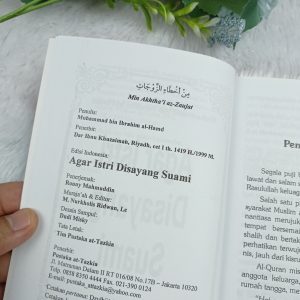 مِنْ أَخْطَاءِ الزَّوْجَاتِ
Min Akhtha'i az-Zaujat
Penulis:
Muhammad bin Ibrahim al-Hamd
Penerbit:
Dar Ibnu Khuzaimah, Riyadh, cet I th. 1419 H./1999 M.
Edisi Indonesia:
Agar Istri Disayang Suami
Penerjemah:
Roony Mahmuddin
Muraja'ah & Editor:
M. Nurkholis Ridwan, Lc
Desain Sampul:
Dudi Misky
Tata Letak:
Tim Pustaka at-Tazkia
Penerbit:
Pustaka at-Tazkia
Jl. Matraman Dalam II RT 016/08 No.17B – Jakarta 10320
Telp. 0838 8350 4444 Fax. 021-390 0124
E-mail: pustaka_attazkia@yahoo.com
Cetakan pertama:
Segala puji
lawat dan salam
Rasulullah keluarga
syarakat Muslim
nantiasa merujuk
tempat untuk
shalih dan
perhatikan terwujud
jannah, dari
oleh kehidupan
Al-Quran
anggota keluarga